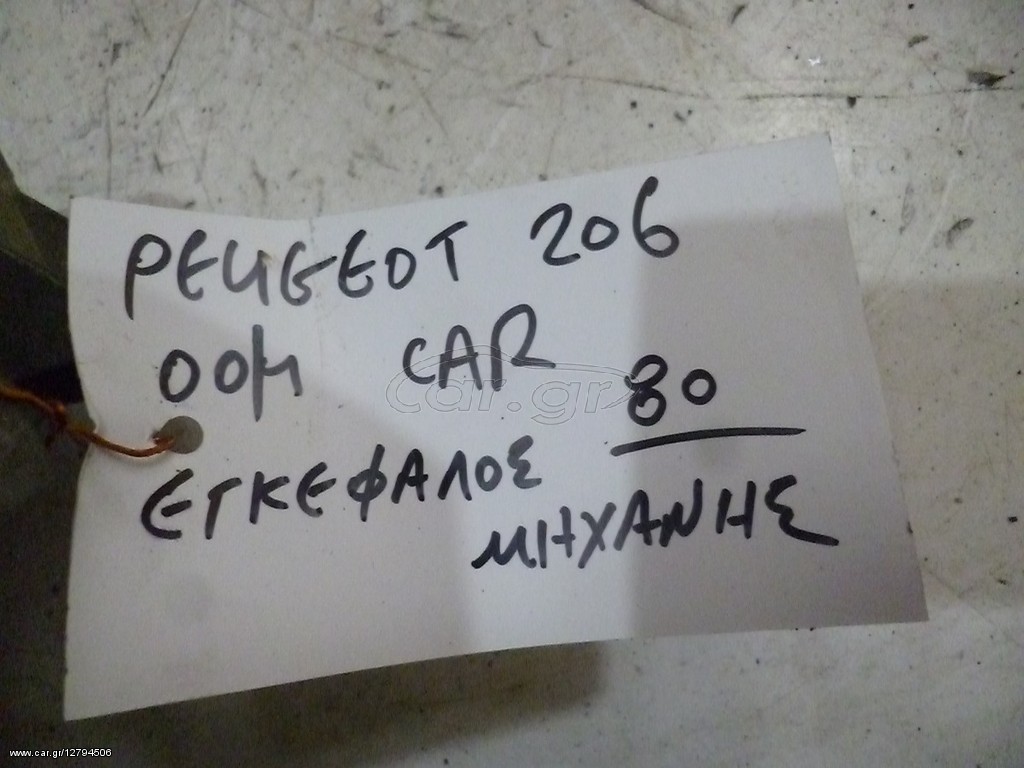 PEUGEOT 206
00M CAR 80
ΕΓΚΕΦΑΛΟΣ
ΜΗΧΑΝΗΣ
car.gr
www.car.gr/12794506